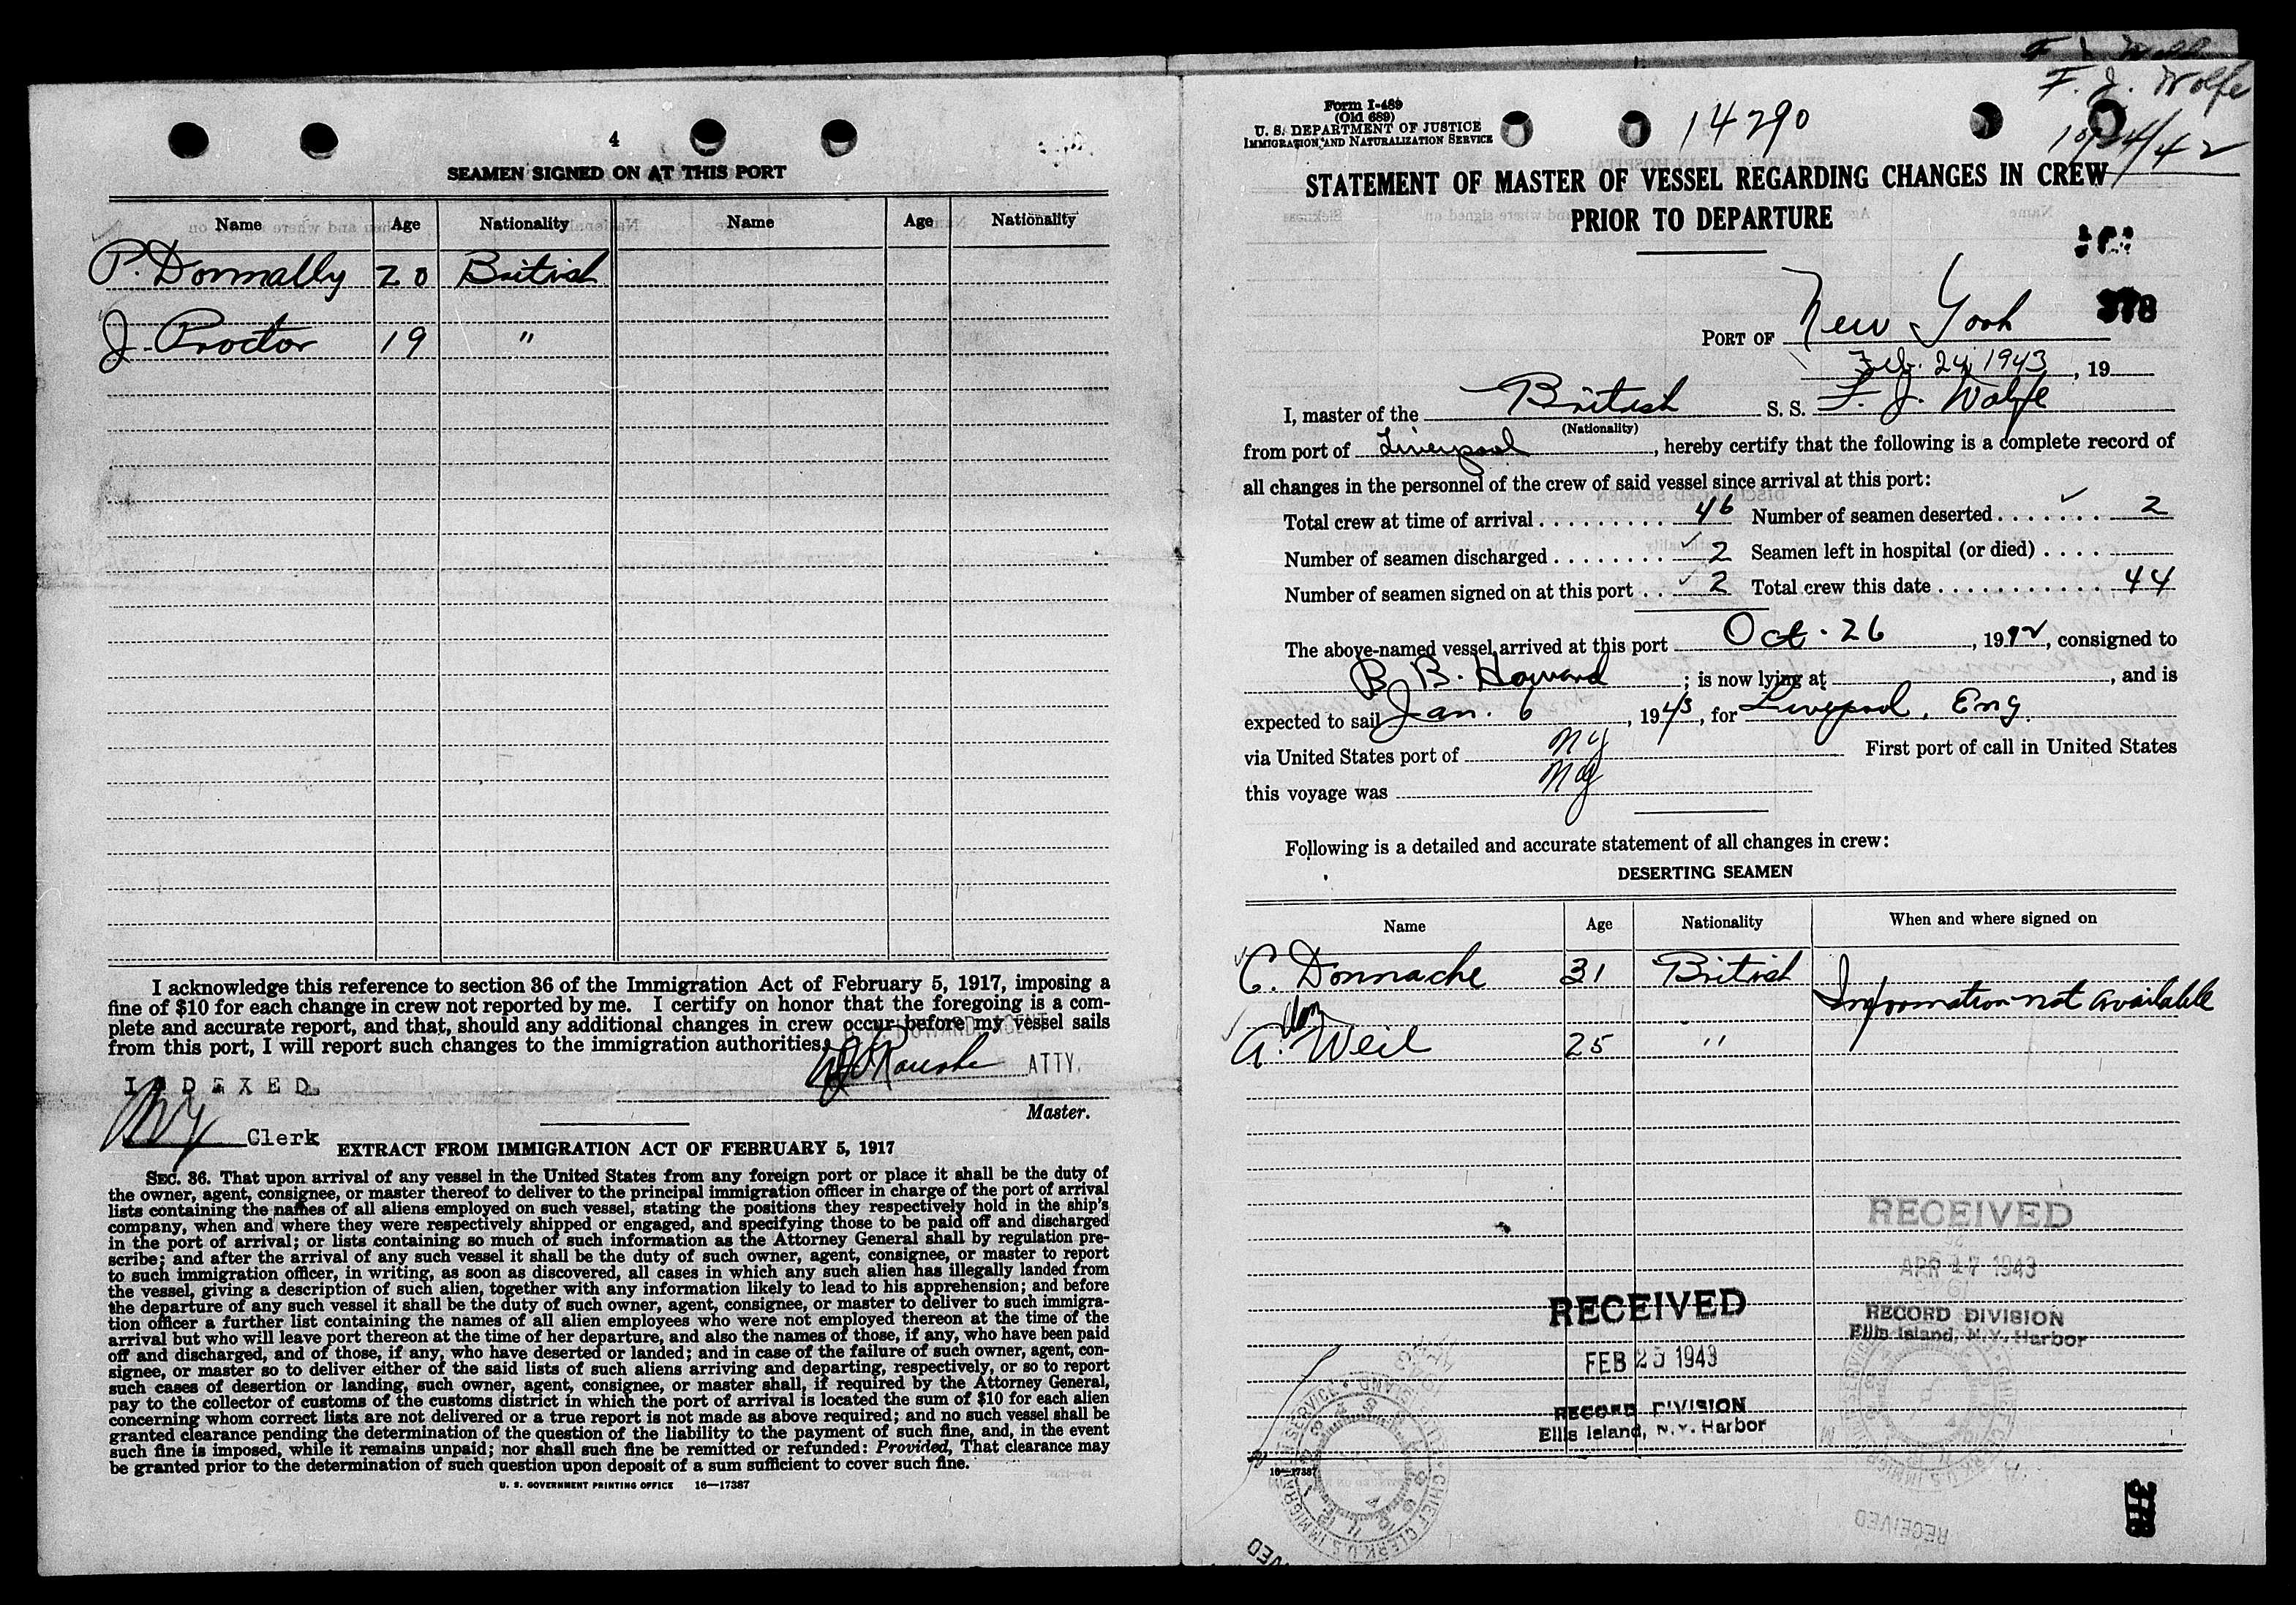 4
SEAMEN SIGNED ON AT THIS PORT
Name Age Nationality Name Age Nationality
P. Donnally 20 British
J. Proctor 19 "
I acknowledge this reference to section 36 of the Immigration Act of February 5, 1917, imposing a
fine of $10 for each change in crew not reported by me. I certify on honor that the foregoing is a com-
plete and accurate report, and that, should any additional changes in crew occur before my vessel sails
from this port, I will report such changes to the immigration authorities.
ATTY.
INDEXED
Master.
Clerk
EXTRACT FROM IMMIGRATION ACT OF FEBRUARY 5, 1917
SEC. 36. That upon arrival of any vessel in the United States from any foreign port or place it shall be the duty of
the owner, agent, consignee, or master thereof to deliver to the principal immigration officer in charge of the port of arrival
lists containing the names of all aliens employed on such vessel, stating the positions they respectively hold in the ship's
company, when and where they were respectively shipped or engaged, and specifying those to be paid off and discharged
in the port of arrival; or lists containing so much of such information as the Attorney General shall by regulation pre-
scribe; and after the arrival of any such vessel it shall be the duty of such owner, agent, consignee, or master to report
to such immigration officer, in writing, as soon as discovered, all cases in which any such alien has illegally landed from
the vessel, giving a description of such alien, together with any information likely to lead to his apprehension; and before
the departure of any such vessel it shall be the duty of such owner, agent, consignee, or master to deliver to such immigra-
tion officer a further list containing the names of all alien employees who were not employed thereon at the time of the
arrival but who will leave port thereon at the time of her departure, and also the names of those, if any, who have been paid
off and discharged, and of those, if any, who have deserted or landed; and in case of the failure of such owner, agent, con-
signee, or master so to deliver either of the said lists of such aliens arriving and departing, respectively, or so to report
such cases of desertion or landing, such owner, agent, consignee, or master shall, if required by the Attorney General,
pay to the collector of customs of the customs district in which the port of arrival is located the sum of $10 for each alien
concerning whom correct lists are not delivered or a true report is not made as above required; and no such vessel shall be
granted clearance pending the determination of the question of the liability to the payment of such fine, and, in the event
such fine is imposed, while it remains unpaid; nor shall such fine be remitted or refunded: Provided, That clearance may
be granted prior to the determination of such question upon deposit of a sum sufficient to cover such fine.
U. S. GOVERNMENT PRINTING OFFICE 16—17387
F. J. Wolfe
10/24/42
Form I-489
(Old 689)
U. S. DEPARTMENT OF JUSTICE
IMMIGRATION AND NATURALIZATION SERVICE
14290
STATEMENT OF MASTER OF VESSEL REGARDING CHANGES IN CREW
PRIOR TO DEPARTURE
378
PORT OF New York
Feb. 24, 1943, 19
I, master of the British S. S. F. J. Wolfe
(Nationality)
from port of Liverpool, hereby certify that the following is a complete record of
all changes in the personnel of the crew of said vessel since arrival at this port:
Total crew at time of arrival 46 Number of seamen deserted 2
Number of seamen discharged 2 Seamen left in hospital (or died)
Number of seamen signed on at this port 2 Total crew this date 44
The above-named vessel arrived at this port Oct. 26, 1942, consigned to
B. B. Howard; is now lying at , and is
expected to sail Jan. 6, 1943, for Liverpool, Eng.
via United States port of NY First port of call in United States
this voyage was NY
Following is a detailed and accurate statement of all changes in crew:
DESERTING SEAMEN
Name Age Nationality When and where signed on
C. Donnache 31 British Information not available
A. Von Weil 25 "
RECEIVED
APR 17 1943
RECORD DIVISION
Ellis Island, N.Y. Harbor
RECEIVED
FEB 25 1943
RECORD DIVISION
Ellis Island, N.Y. Harbor
16—17387
RECEIVED
378